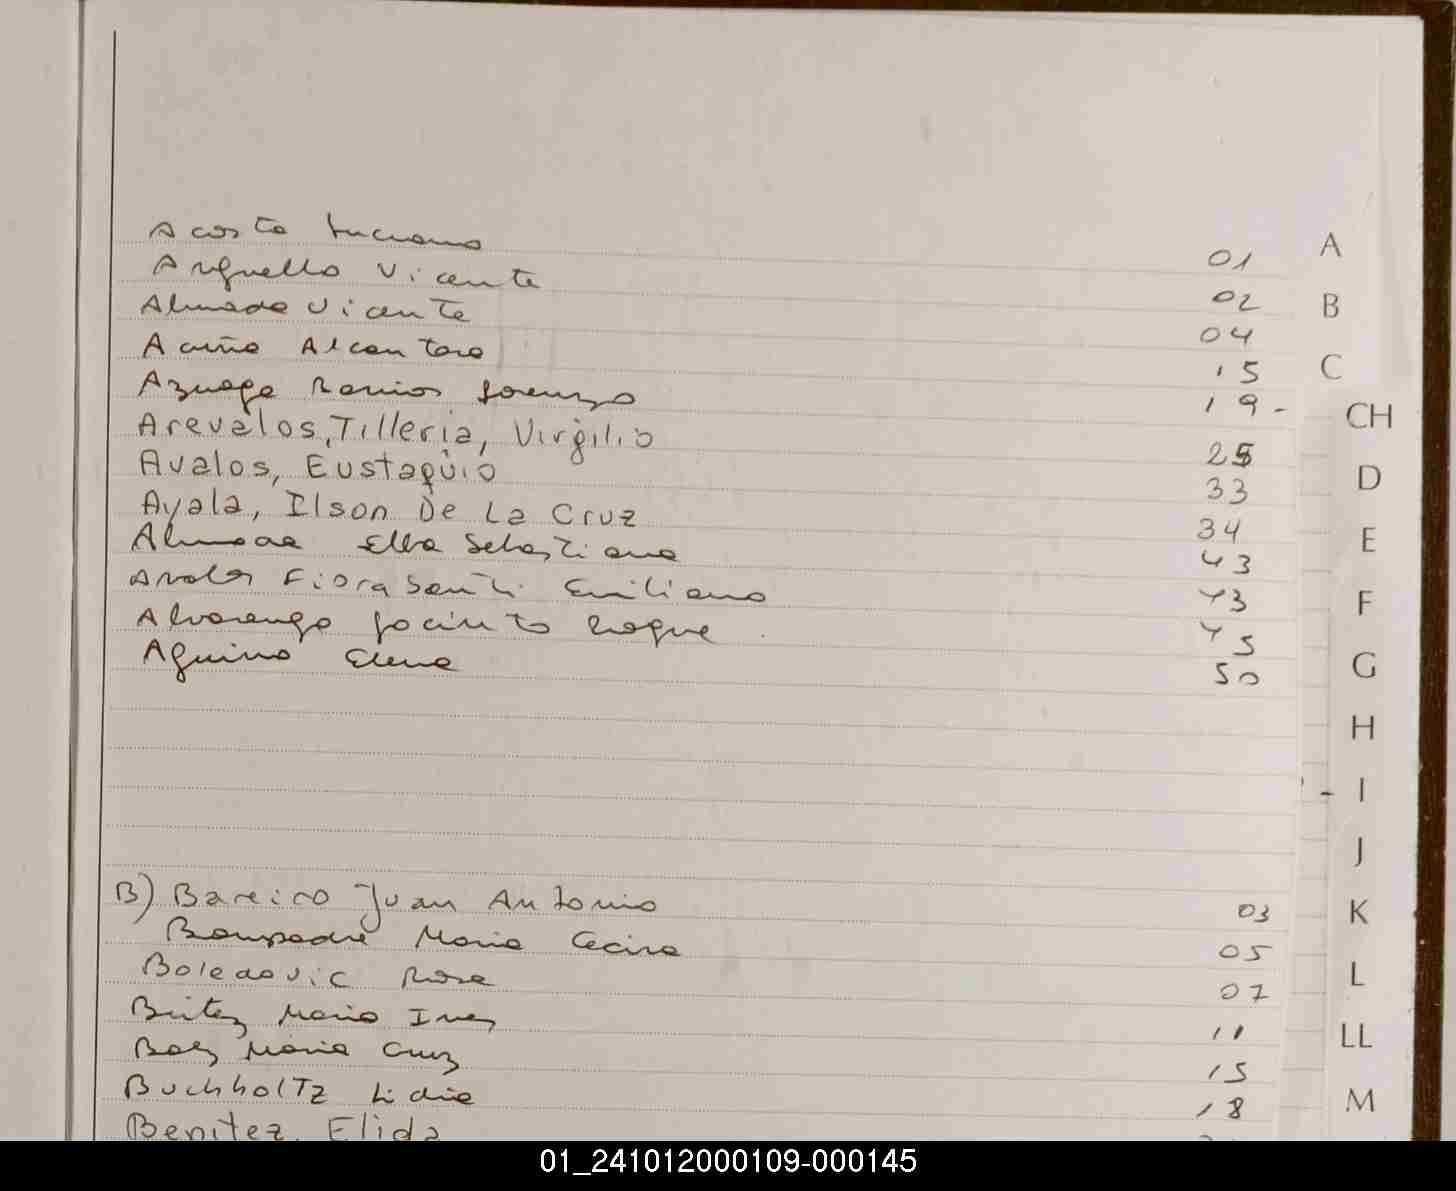 Acosta Luciano 01
Arguello Vicente 02
Almada Vicente 04
Acuña Alcantara 15
Azuaga Ramos Lorenzo 19-
Arevalos, Tilleria, Virgilio 25
Avalos, Eustaquio 33
Ayala, Ilson De La Cruz 34
Almada Elba Sebastiana 43
Avalos Fiorasanti Emiliano 43
Alvarenga Jacinto Roque 45
Aquino Elena 50
B) Bareiro Juan Antonio 03
Maria 05
Boledovic Rosa 07
Britez Maria Ines 11
Baez Maria Cruz 15
Buchholtz Lidia 18
Benitez, Elida
A
B
C
CH
D
E
F
G
H
I
J
K
L
LL
M
01_241012000109-000145